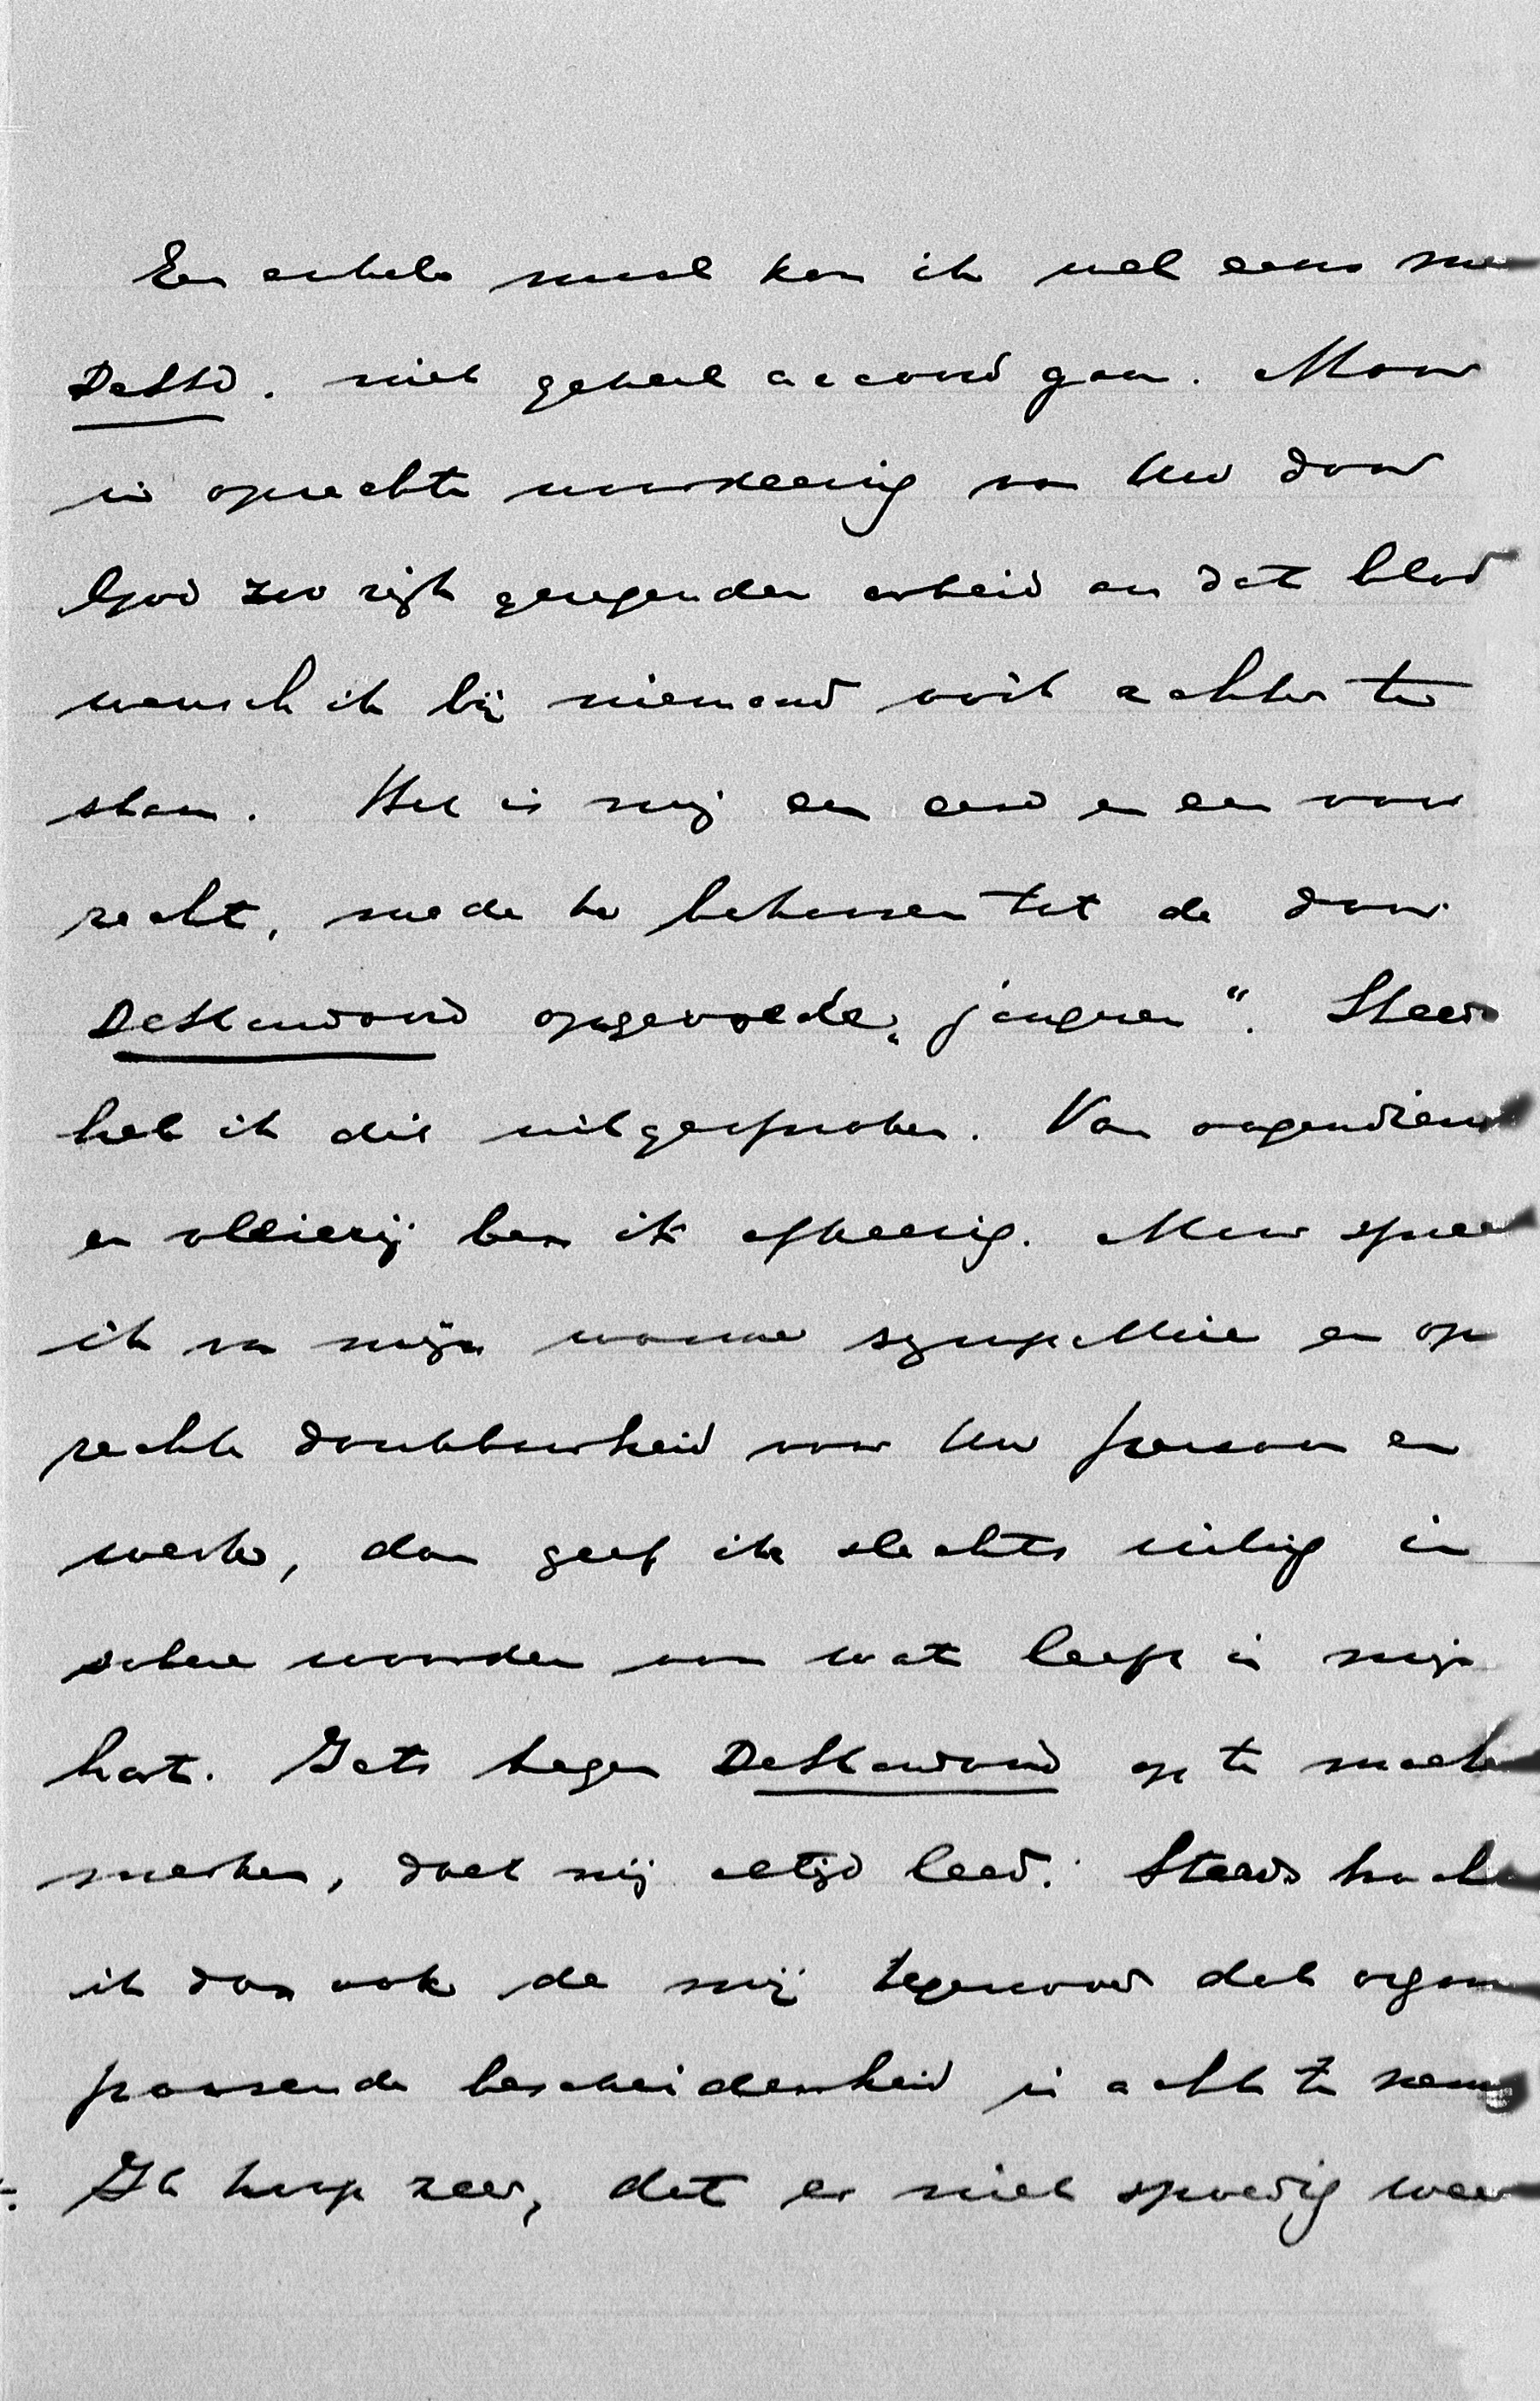 Een enkele maal kan ik wel eens me
DeSta. niet geheel accoord gaan. Maar
in oprechte waardeering van Uw door
God zoo rijk gezegenden arbeid aan dat blad
wensch ik bij niemand ooit achter te
staan. Het is mij een eere en een voor
recht, mede te behooren tot de door
DeStandaard opgevoede „jongeren“. Steeds
heb ik dit uitgesproken. Van oogendienst
en vleierij ben ik afkeerig. Maar spreek
ik van mijn warme sympathie en op
rechte dankbaarheid voor Uw persoon en
werk, dan geef ik slechts uiting in
sobere woorden van wat leeft in mijn
hart. Iets tegen DeStandaard op te moeten
merken, doet mij altijd leed. Steeds tracht
ik dan ook de mij tegenover dat orgaan
passende bescheidenheid in acht te nemen
Ik hoop zeer, dat er niet spoedig weer